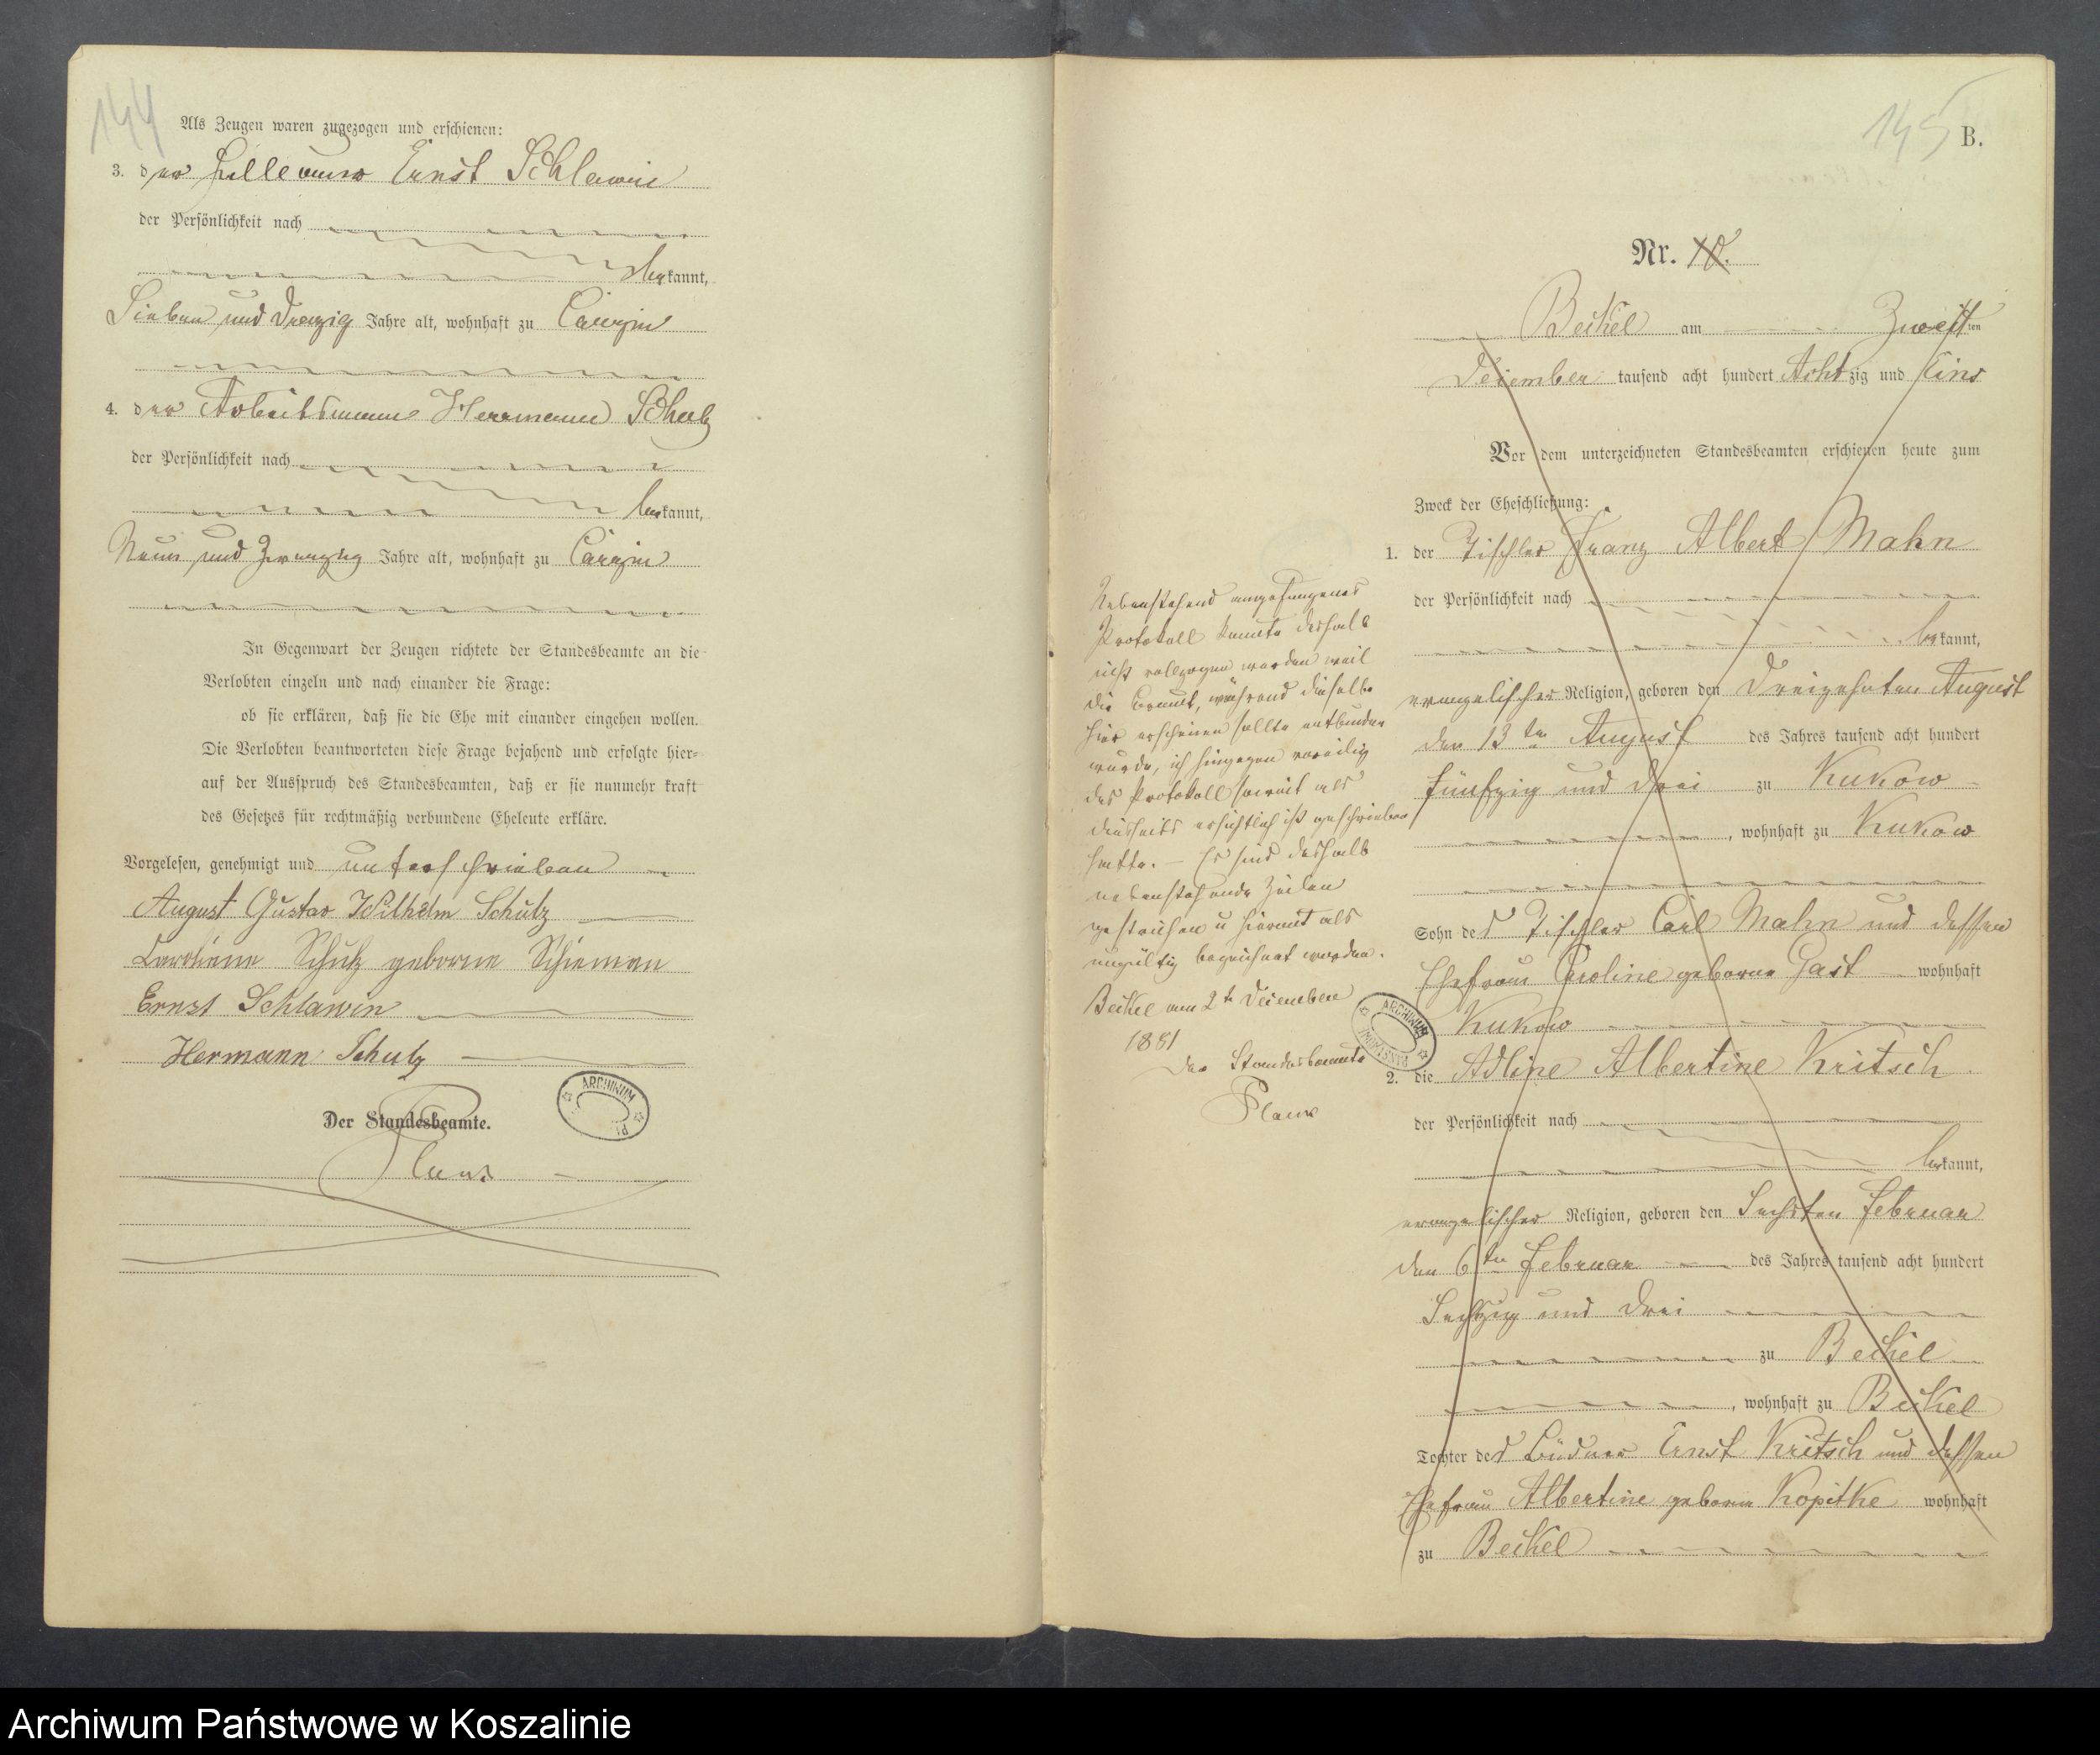 144
Als Zeugen waren zugezogen und erschienen:
3. der Ernst Schlawin
der Persönlichkeit nach
bekannt,
Sieben und Dreizig Jahre alt, wohnhaft zu Carzin
4. der Arbeitsmann Herrmann Schulz
der Persönlichkeit nach
bekannt,
Neun und Zwanzig Jahre alt, wohnhaft zu Carzin
In Gegenwart der Zeugen richtete der Standesbeamte an die
Verlobten einzeln und nach einander die Frage:
ob sie erklären, daß sie die Ehe mit einander eingehen wollen.
Die Verlobten beantworteten diese Frage bejahend und erfolgte hier-
auf der Ausspruch des Standesbeamten, daß er sie nunmehr kraft
des Gesetzes für rechtmäßig verbundene Eheleute erkläre.
Vorgelesen, genehmigt und unterschrieben
August Gustav Wilhelm Schulz
Schulz geborne Schieman
Ernst Schlawin
Hermann Schulz
Der Standesbeamte.
ARCHIWUM
145
B.
Nr. 10.
Beikel am Zweiten
Deiember tausend acht hundert Achtzig und Eins
Vor dem unterzeichneten Standesbeamten erschienen heute zum
Zweck der Eheschließung:
1. der Tischler Franz Albert Mahn
der Persönlichkeit nach
bekannt,
evangelischer Religion, geboren den Dreizehnten August
den 13ten August des Jahres tausend acht hundert
fünfzig und drei zu Kukow
, wohnhaft zu Kukow
Sohn des Tischler Carl Mahn und dessen
Ehefrau Caroline geborne Gast wohnhaft
Kukow
2. die Adline Albertine Kritsch
der Persönlichkeit nach
bekannt,
evangelischer Religion, geboren den Sechsten Februar
den 6ten Februar des Jahres tausend acht hundert
Sechzig und drei
zu Beikel
, wohnhaft zu Beikel
Tochter des Büdner Ernst Kritsch und dessen
Ehefrau Albertine geborne Kopitke wohnhaft
zu Beikel
Nebenstehend angefangenes
Protokoll konnte deshalb
nicht vollzogen werden weil
die Braut, während dieselbe
hier erscheinen sollte entbunden
wurde, ich hingegen voreilig
das Protokoll soweit als
diesseits ersichtlich ist geschrieben
hatte. – Es sind deshalb
nebenstehende Zeilen
gestrichen u hiermit als
ungültig bezeichnet worden.
Beikel am 2t Deiember
1881
Der Standesbeamte
ARCHIWUM
Archiwum Państwowe w Koszalinie